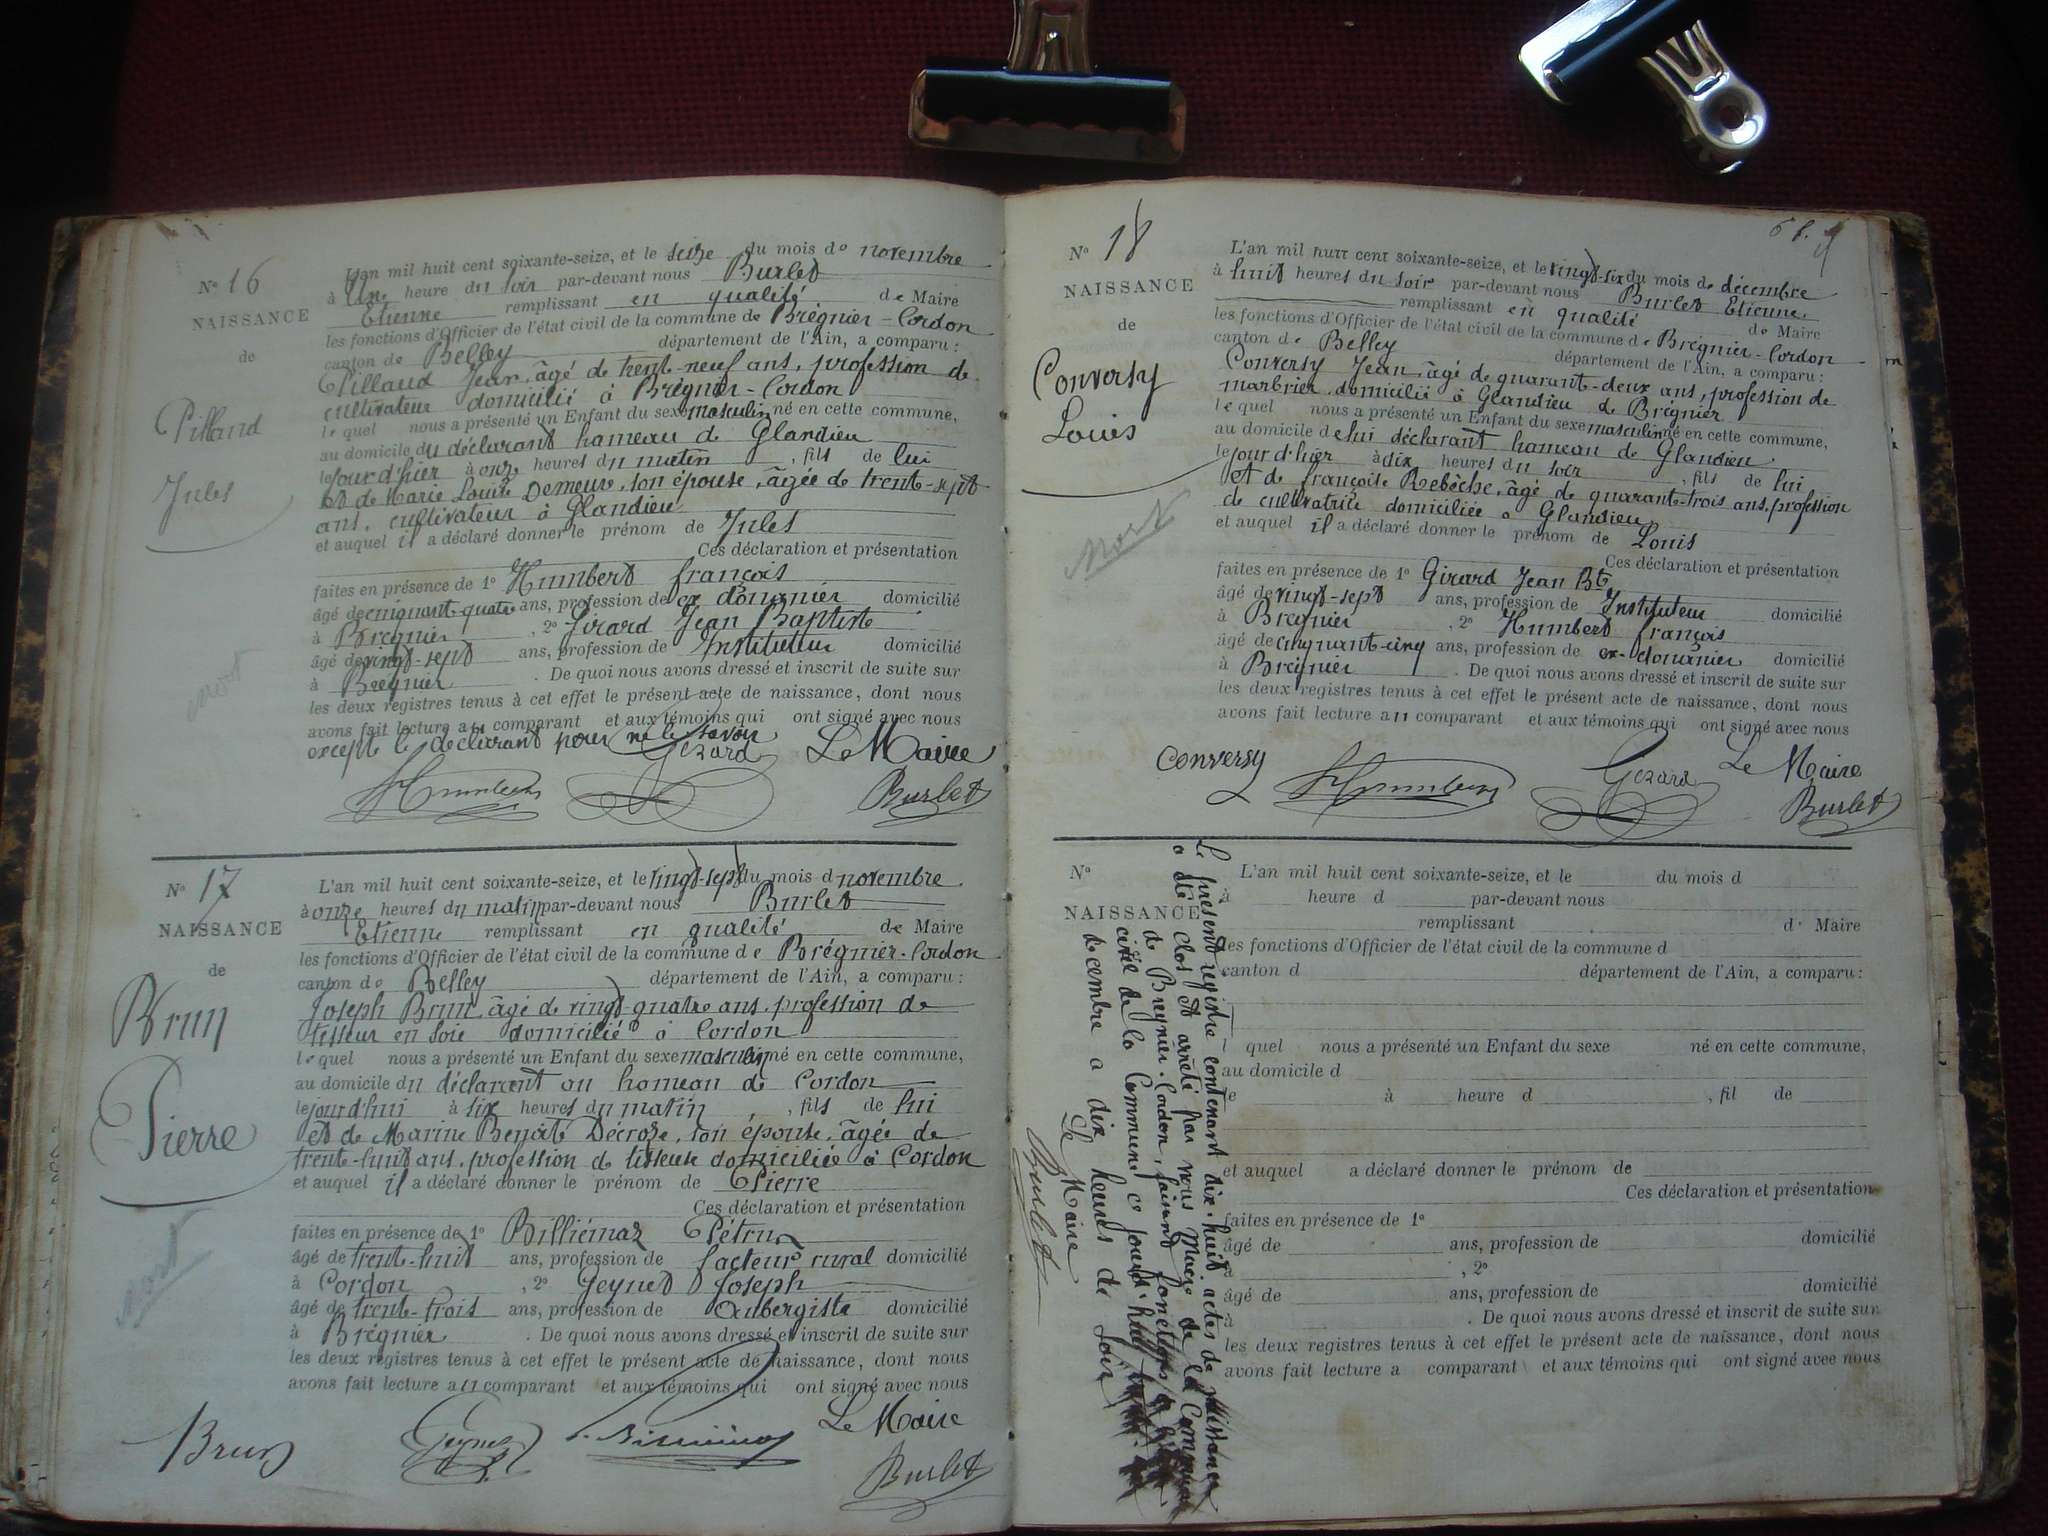 Nº 16
NAISSANCE
de
Pilland
Jules
mort
L'an mil huit cent soixante-seize, et le seize du mois de novembre
à Une heure du soir par-devant nous Burlet
Etienne remplissant en qualité de Maire
les fonctions d'Officier de l'état civil de la commune de Brégnier-Cordon
canton de Belley département de l'Ain, a comparu :
Pilland Jean, âgé de trente-neuf ans, profession de
cultivateur domicilié à Brégnier-Cordon
le quel nous a présenté un Enfant du sexe masculin né en cette commune,
au domicile du déclarant hameau de Glandieu
le jour d'hier à onze heures du matin , fils de lui
et de Marie Louise Demeure, son épouse, âgée de trente-sept
ans, cultivateur à Glandieu
et auquel il a déclaré donner le prénom de Jules
Ces déclaration et présentation
faites en présence de 1º Humbert françois
âgé de cinquant-quatre ans, profession de ex douanier domicilié
à Bregnier , 2º Girard Jean Baptiste
âgé de vingt-sept ans, profession de Instituteur domicilié
à Bregnier . De quoi nous avons dressé et inscrit de suite sur
les deux registres tenus à cet effet le présent acte de naissance, dont nous
avons fait lecture au comparant et aux témoins qui ont signé avec nous
excepté le déclarant pour ne le savoir
Girard Le Maire
Humbert Burlet
Nº 17
NAISSANCE
de
Brun
Pierre
mort
L'an mil huit cent soixante-seize, et le vingt-sept du mois d novembre
à onze heures du matin par-devant nous Burlet
Etienne remplissant en qualité de Maire
les fonctions d'Officier de l'état civil de la commune de Brégnier-Cordon
canton de Belley département de l'Ain, a comparu :
Joseph Brun, âgé de vingt-quatre ans, profession de
tisseur en soie domicilié à Cordon
le quel nous a présenté un Enfant du sexe masculin né en cette commune,
au domicile du déclarant au hameau de Cordon
le jour d'hui à six heures du matin , fils de lui
et de Marine Benoite Décroze, son épouse, âgée de
trente-huit ans, profession de tisseuse domiciliée à Cordon
et auquel il a déclaré donner le prénom de Pierre
Ces déclaration et présentation
faites en présence de 1º Billiémaz Pétrus
âgé de trente-huit ans, profession de facteur rural domicilié
à Cordon , 2º Jeynet Joseph
âgé de trente-trois ans, profession de Aubergiste domicilié
à Brégnier . De quoi nous avons dressé et inscrit de suite sur
les deux registres tenus à cet effet le présent acte de naissance, dont nous
avons fait lecture au comparant et aux témoins qui ont signé avec nous
Le Maire
Brun Jeynet Burlet
Nº 18
NAISSANCE
de
Conversy
Louis
mort
L'an mil huit cent soixante-seize, et le vingt-six du mois de décembre
à huit heures du soir par-devant nous Burlet Etienne
remplissant en qualité de Maire
les fonctions d'Officier de l'état civil de la commune de Brégnier-Cordon
canton de Belley département de l'Ain, a comparu :
Conversy Jean, âgé de quarant-deux ans, profession de
marbrier, domicilié à Glandieu de Brégnier
le quel nous a présenté un Enfant du sexe masculin né en cette commune,
au domicile de lui déclarant hameau de Glandieu
le jour d'hier à dix heures du soir , fils de lui
Et de françoise Rebèche, âgé de quarante-trois ans, profession
de cultivatrice domiciliée à Glandieu
et auquel il a déclaré donner le prénom de Louis
Ces déclaration et présentation
faites en présence de 1º Girard Jean Bte
âgé de vingt-sept ans, profession de Instituteur domicilié
à Bregnier , 2º Humbert françois
âgé de cinquant-cinq ans, profession de ex-douanier domicilié
à Brégnier . De quoi nous avons dressé et inscrit de suite sur
les deux registres tenus à cet effet le présent acte de naissance, dont nous
avons fait lecture au comparant et aux témoins qui ont signé avec nous
Conversy Humbert Girard Le Maire
Burlet
Nº
NAISSANCE
L'an mil huit cent soixante-seize, et le du mois d
à heure d par-devant nous
remplissant d Maire
les fonctions d'Officier de l'état civil de la commune d
canton d département de l'Ain, a comparu :
l quel nous a présenté un Enfant du sexe né en cette commune,
au domicile d
le à heure d , fil de
et auquel a déclaré donner le prénom de
Ces déclaration et présentation
faites en présence de 1º
âgé de ans, profession de domicilié
à , 2º
âgé de ans, profession de domicilié
à . De quoi nous avons dressé et inscrit de suite sur
les deux registres tenus à cet effet le présent acte de naissance, dont nous
avons fait lecture a comparant et aux témoins qui ont signé avec nous
Le présent registre contenant dix-huit actes de naissance
a été clos et arrêté par nous Maire de la Commune
de Bregnier-Cordon, faisant fonctions
civil de la Commune ce jourd'hui
decembre a dix heures de soir
Le Maire
Burlet